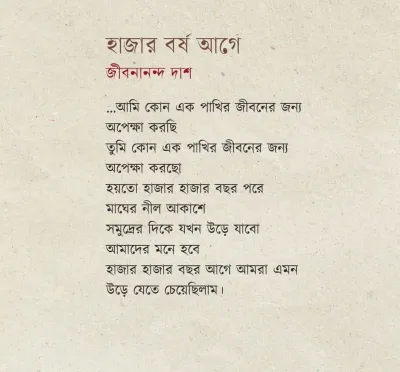 হাজার বর্ষ আগে
জীবনানন্দ দাশ
...আমি কোন এক পাখির জীবনের জন্য
অপেক্ষা করছি
তুমি কোন এক পাখির জীবনের জন্য
অপেক্ষা করছো
হয়তো হাজার হাজার বছর পরে
মাঘের নীল আকাশে
সমুদ্রের দিকে যখন উড়ে যাবো
আমাদের মনে হবে
হাজার হাজার বছর আগে আমরা এমন
উড়ে যেতে চেয়েছিলাম।